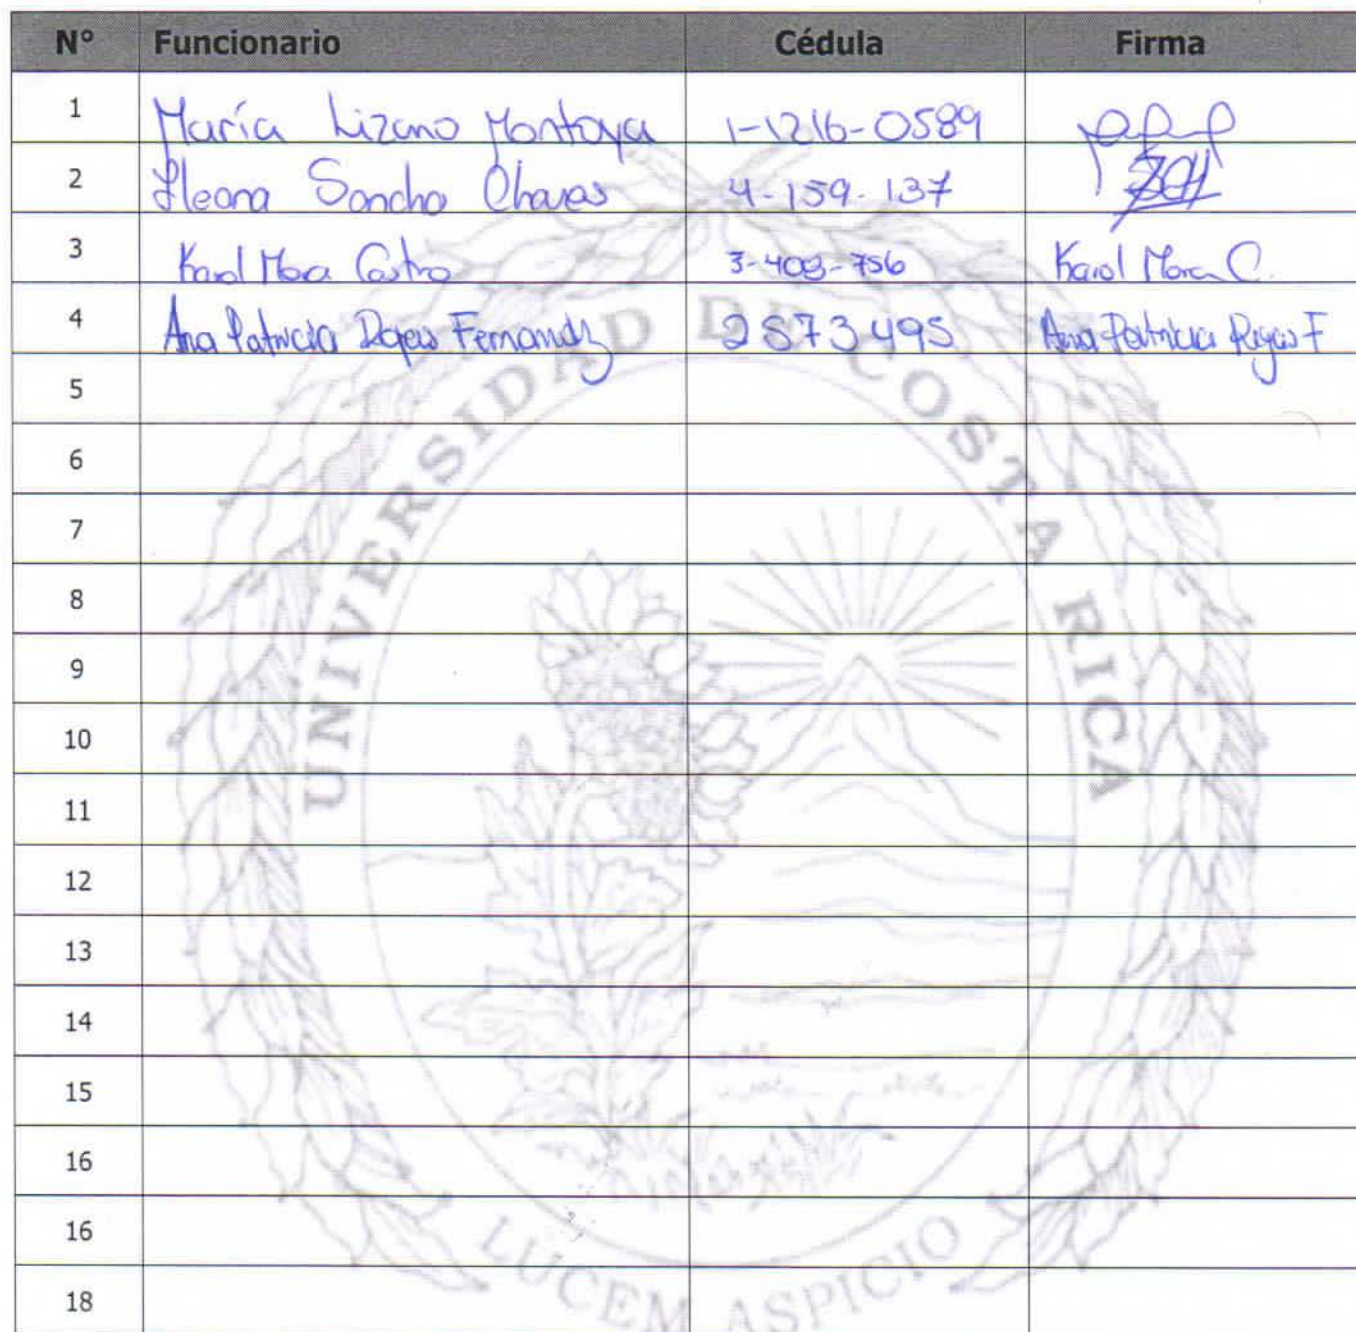 N° Funcionario Cédula Firma
1 María Lizano Montoya 1-1216-0589
2 Ileana Sancho Chavas 4-159-137
3 Karol Mora Castro 3-408-756 Karol Mora C.
4 Ana Patricia Rojas Fernandz 2573495 Ana Patricia Rojas F
5
6
7
8
9
10
11
12
13
14
15
16
16
18
UNIVERSIDAD DE COSTA RICA
LUCEM ASPICIO